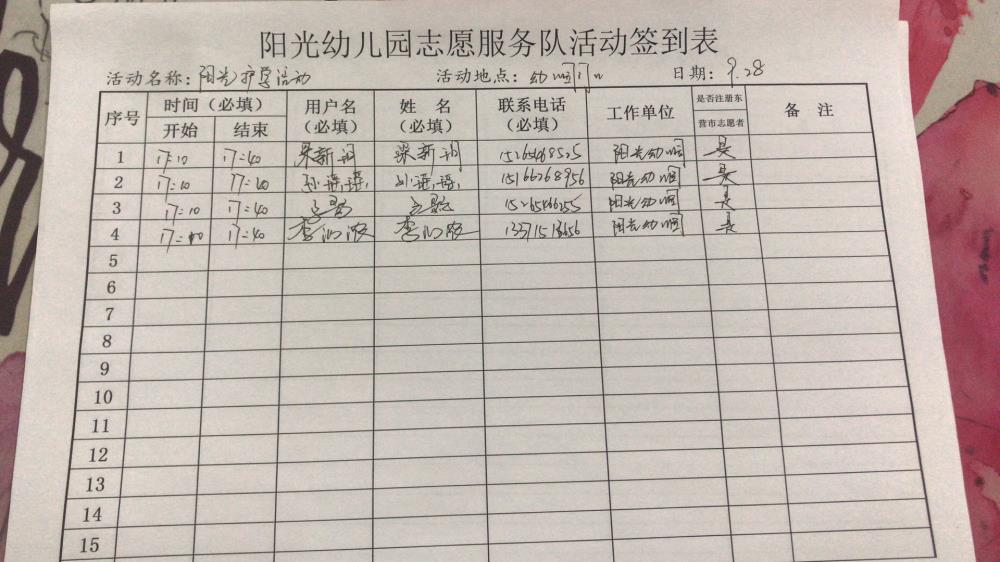 阳光幼儿园志愿服务队活动签到表
活动名称：阳光护学活动 活动地点：幼儿园门口 日期：9.28
序号 时间（必填） 用户名（必填） 姓名（必填） 联系电话（必填） 工作单位 是否注册东营市志愿者 备注
开始 结束
1 17:10 17:40 梁新 梁新 阳光幼儿园 是
2 17:10 17:40 孙瑶瑶 孙瑶瑶 15166268956 阳光幼儿园 是
3 17:10 17:40 阳光幼儿园 是
4 17:10 17:40 李 李 阳光幼儿园 是
5
6
7
8
9
10
11
12
13
14
15